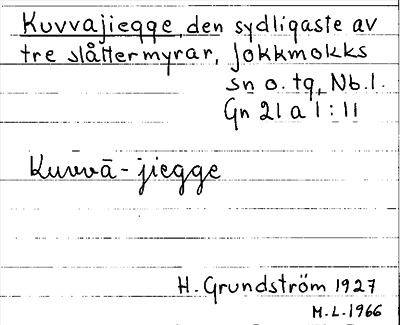 Kuvvajiegge, den sydligaste av
tre slåttermyrar, Jokkmokks
sn o. tg, Nb.l.
Gn 21 a 1:11
Kuvvā-jiegge
H. Grundström 1927
M.L. 1966